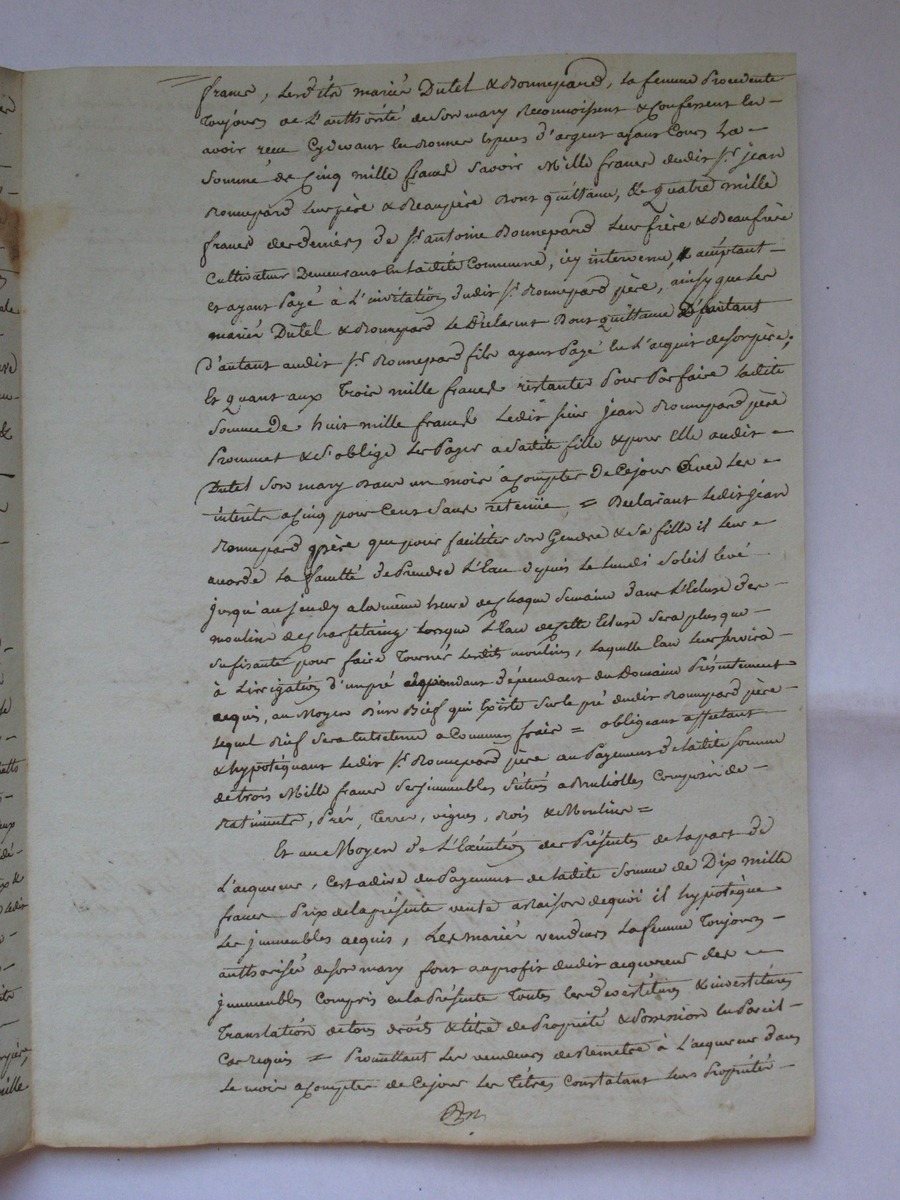 francs, Lesdits mariés Dutel & Bonnepard, la femme Procedente
Toujours de L'authorité de son mary Reconnoissent & Confessent en
avoir reçu Cydevant en Bonnes Especes d'argent ayant Cours La
Somme de Cinq mille francs Savoir Mille francs dudit Sr. jean
Bonnepard leur père & Beaupère Dont quittance, & Quatre mille
francs des deniers de Sr. antoine Bonnepard Leur frère & Beaufrère
Cultivateur Demeurant en Ladite Commune, icy intervenu, & acceptant
et ayant Payé à L'invitation dudit Sr. Bonnepard père, ainsy que Les
mariés Dutel & Bonnepard Le Déclarent Dont quittance
D'autant audit Sr. Bonnepard fils ayant Payé En L'acquit de son père.
Et quant aux Trois mille francs restantes Pour Parfaire ladite
Somme De huit mille francs Ledit sieur jean Bonnepard père
Promet & S'oblige Les Payer a Sadite fille & pour Elle audit
Dutel Son mary Dans un mois à Compter de Cejour avec Les
interêts a Cinq pour Cent Sans retenüe = Declarant Ledit jean
Bonnepard père que pour faciliter son Gendre & Sa fille il leur
accorde La faculté de Prendre L'Eau depuis Le Lundi Soleil levé
jusqu'au jeudy a la même heure de Chaque Semaine dans L'Ecluse des
moulins de Lorsque L'Eau de cette Ecluse sera plus que
sufisante pour faire Tourner Lesdits moulins, Laquelle Eau Leur servira
à L'irrigation d'un pré dépendant du Domaine Présentement
acquis, au Moyen D'un Bief qui Existe sur le pré dudit Bonnepard père
Lequel Bief sera Entretenu a Communs frais = obligeant affectant
& hypotéquant Ledit Sr. Bonnepard père au Payement de ladite Somme
de trois Mille francs Ses immeubles Situés a Composés de
Batiments, Prés, Terres, vignes, Bois & Moulins =
Et au Moyen de L'Exécution des Présentes de la part de
L'acquereur, C'est a dire du Payement de ladite Somme de Dix mille
francs Prix de la présente vente a raison de quoi il hypotèque
Les immeubles acquis, Les mariés vendeurs La femme Toujours
authorisée de son mary font au profit dudit acquereur des
immeubles Compris en la Présente Toutes devestitures & investitures
Translation de tous droits & titre de Propriété & Possession En Pareil
Cas requis = Promettant Les vendeurs de Remetre à L'acquereur dans
Le mois a Compter de Cejour Les Titres Constatant Leurs Propriétés